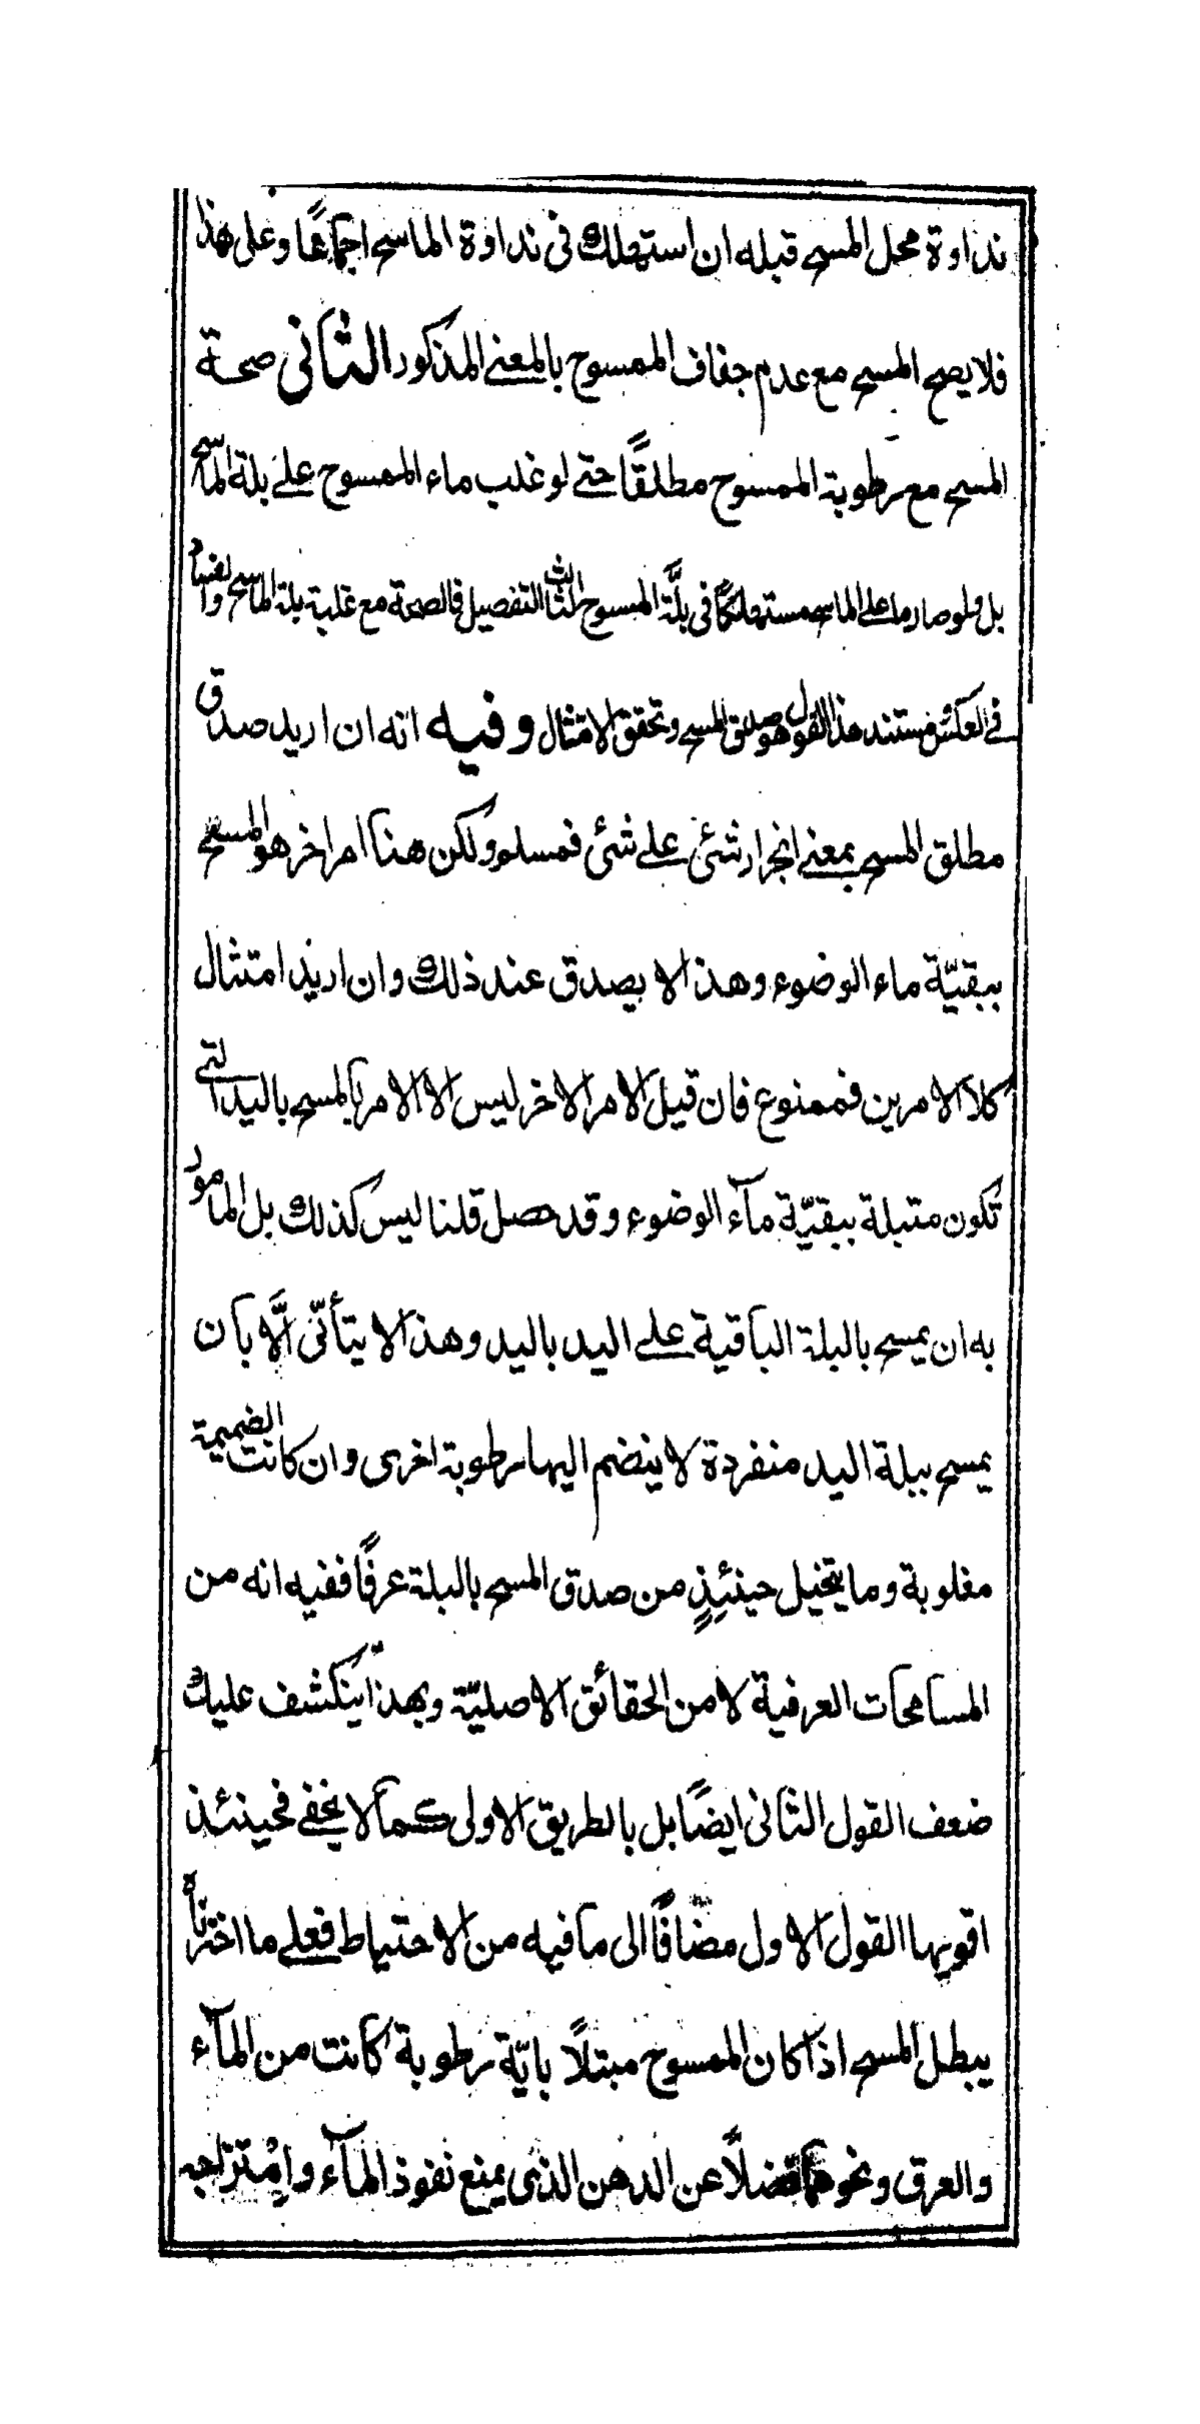 نداوة محل المسح قبله ان استهلك في نداوة الماسح اجماعًا وعلى هذا
فلا يصح المسح مع عدم جفاف الممسوح بالمعنى المذكور الثاني صحة
المسح مع رطوبة الممسوح مطلقًا حتى لو غلب ماء الممسوح على بلة الماسح
بل ولو صار ما على الماسح مستهلكًا في بلَّة الممسوح الثالث التفصيل فالصحة مع غلبة بلة الماسح والفساد
في العكس مستند هذا القول هو صدق المسح وتحقق الامتثال وفيه انه ان اريد صدق
مطلق المسح بمعنى انجرار شئ على شئ فمسلم ولكن هنا امر اخر هو المسح
ببقيّة ماء الوضوء وهذا لا يصدق عند ذلك وان اريد امتثال
كلا الامرين فممنوع فان قيل الامر الاخر ليس الا الامر بالمسح باليد التي
تكون متبلة ببقيّة مآء الوضوء وقد حصل قلنا ليس كذلك بل المامور
به ان يمسح بالبلة الباقية على اليد باليد وهذا لا يتأتّى الَّا بان
يمسح ببلة اليد منفردة لا ينضم اليها رطوبة اخرى وان كانت الضميمة
مغلوبة وما يتخيل حينئذٍ من صدق المسح بالبلة عرفًا ففيه انه من
المسامحات العرفية لا من الحقائق الاصليّة وبهذا ينكشف عليك
ضعف القول الثاني ايضًا بل بالطريق الاولى كما لا يخفى فحينئذ
اقويها القول الاول مضافًا الى ما فيه من الاحتياط فعلى ما اخترناه
يبطل المسح اذا كان الممسوح مبتلًا بايّة رطوبة كانت من المآء
والعرق ونحوهما فضلًا عن الدهن الذي يمنع نفوذ المآء وامْتزاجه